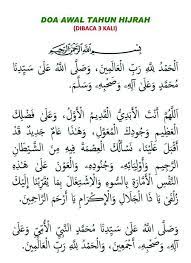 DOA AWAL TAHUN HIJRAH
(DIBACA 3 KALI)
بِسْمِ اللهِ الرَّحْمَنِ الرَّحِيْمِ
الْحَمْدُ لِلَّهِ رَبِّ الْعَالَمِيْنَ، وَصَلَّى اللهُ عَلَى سَيِّدِنَا
مُحَمَّدٍ وَعَلَى آلِهِ، وَصَحْبِهِ، وَسَلَّمَ.
اللَّهُمَّ أَنْتَ الْأَبَدِيُّ الْقَدِيْمُ الْأَوَّلُ، وَعَلَى فَضْلِكَ
الْعَظِيْمِ وَجُوْدِكَ الْمُعَوَّلِ، وَهَذَا عَامٌ جَدِيْدٌ قَدْ
أَقْبَلَ عَلَيْنَا، نَسْأَلُكَ الْعِصْمَةَ فِيْهِ مِنَ الشَّيْطَانِ
الرَّجِيْمِ وَأَوْلِيَائِهِ، وَجُنُوْدِهِ، وَالْعَوْنَ عَلَى هَذِهِ
النَّفْسِ الْأَمَّارَةِ بِالسُّوْءِ وَالْاِشْتِغَالَ بِمَا يُقَرِّبُنَا إِلَيْكَ
زُلْفَى يَا ذَا الْجَلَالِ وَالْإِكْرَامِ يَا أَرْحَمَ الرَّاحِمِيْنَ.
وَصَلَّى اللهُ عَلَى سَيِّدِنَا مُحَمَّدٍ النَّبِيِّ الْأُمِّيِّ وَعَلَى
آلِهِ، وَصَحْبِهِ، أَجْمَعِيْنَ، وَالْحَمْدُ لِلَّهِ رَبِّ الْعَالَمِيْنَ.